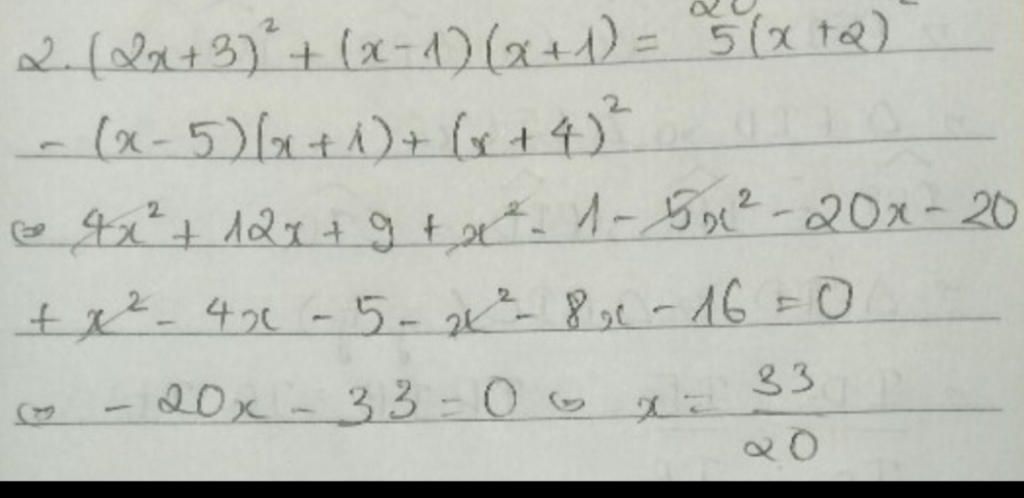 2. (2x+3)² + (x-1)(x+1) = 5(x+2)²
- (x-5)(x+1) + (x+4)²
⇔ 4x² + 12x + 9 + x² - 1 - 5x² - 20x - 20
+ x² - 4x - 5 - x² - 8x - 16 = 0
⇔ - 20x - 33 = 0 ⇔ x = 33/20